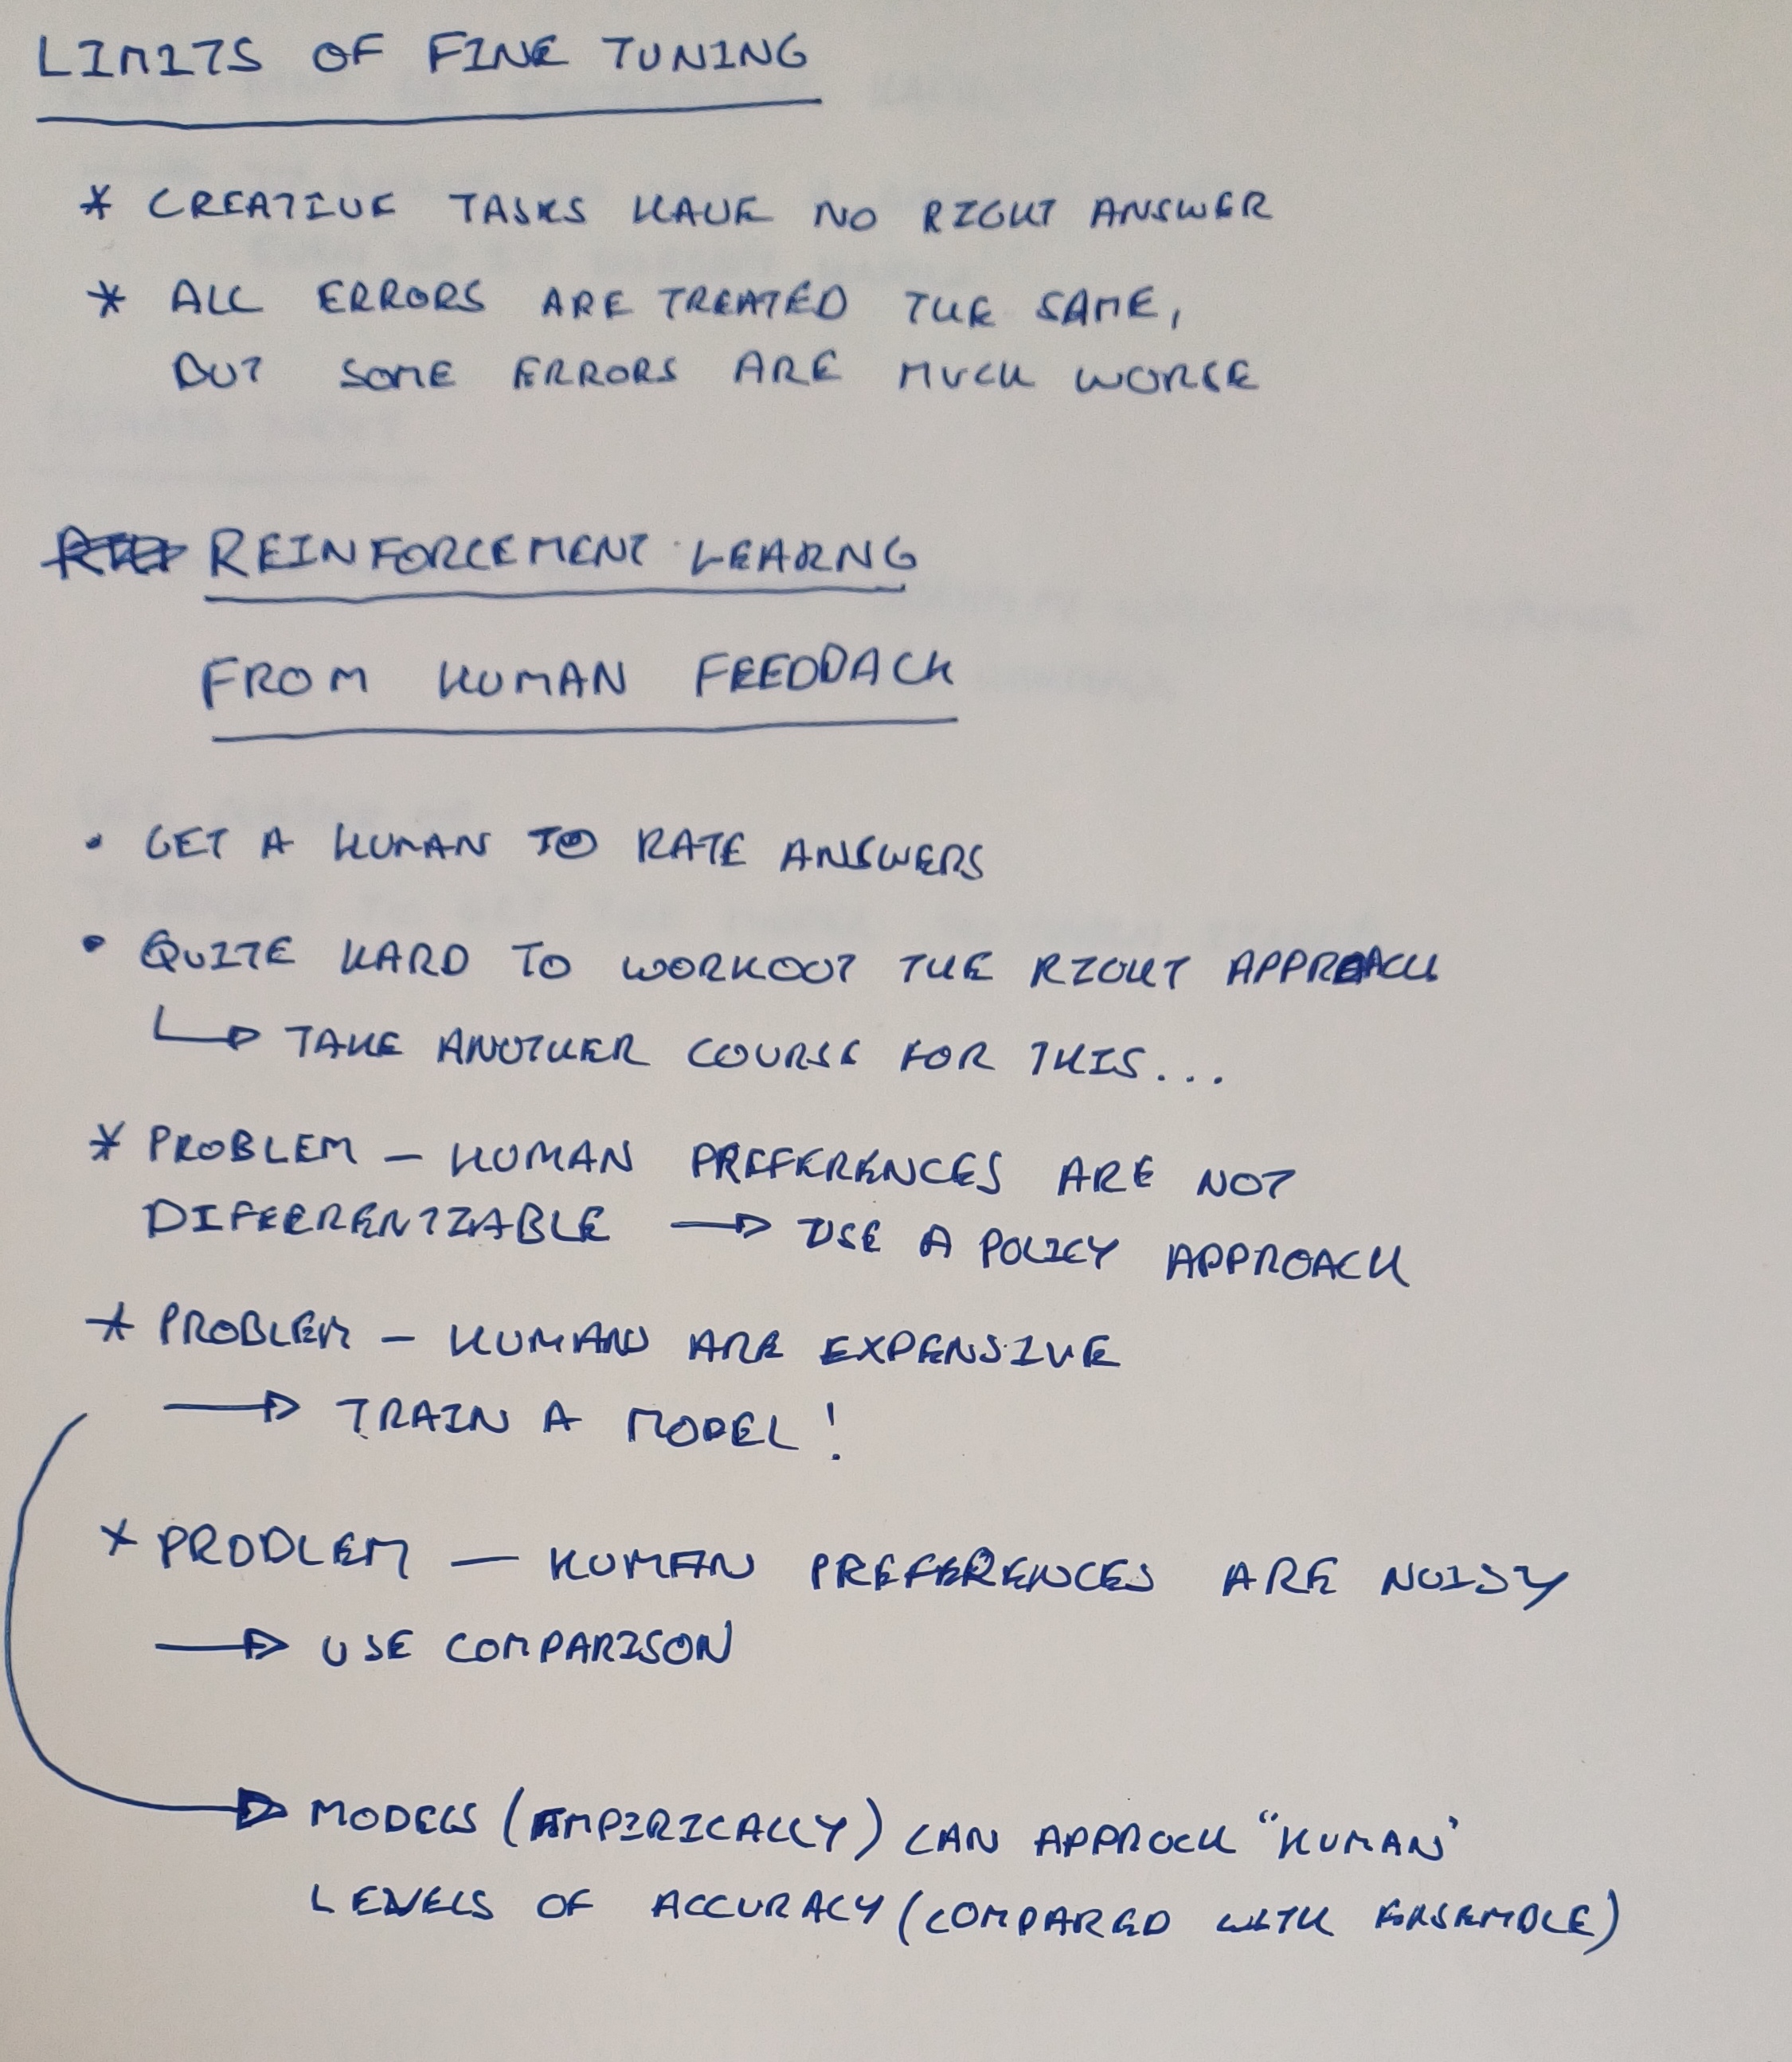 LIMITS OF FINE TUNING
* CREATIVE TASKS HAVE NO RIGHT ANSWER
* ALL ERRORS ARE TREATED THE SAME,
BUT SOME ERRORS ARE MUCH WORSE
REINFORCEMENT LEARNG
FROM HUMAN FEEDBACK
• GET A HUMAN TO RATE ANSWERS
• QUITE HARD TO WORKOUT THE RIGHT APPROACH
↳ TAKE ANOTHER COURSE FOR THIS...
* PROBLEM – HUMAN PREFERENCES ARE NOT
DIFEERENTIABLE → USE A POLICY APPROACH
* PROBLEM – HUMANS ARE EXPENSIVE
→ TRAIN A MODEL!
* PROBLEM – HUMAN PREFERENCES ARE NOISY
→ USE COMPARISON
→ MODELS (EMPIRICALLY) CAN APPROCH "HUMAN"
LEVELS OF ACCURACY (COMPARED WITH ENSEMBLE)